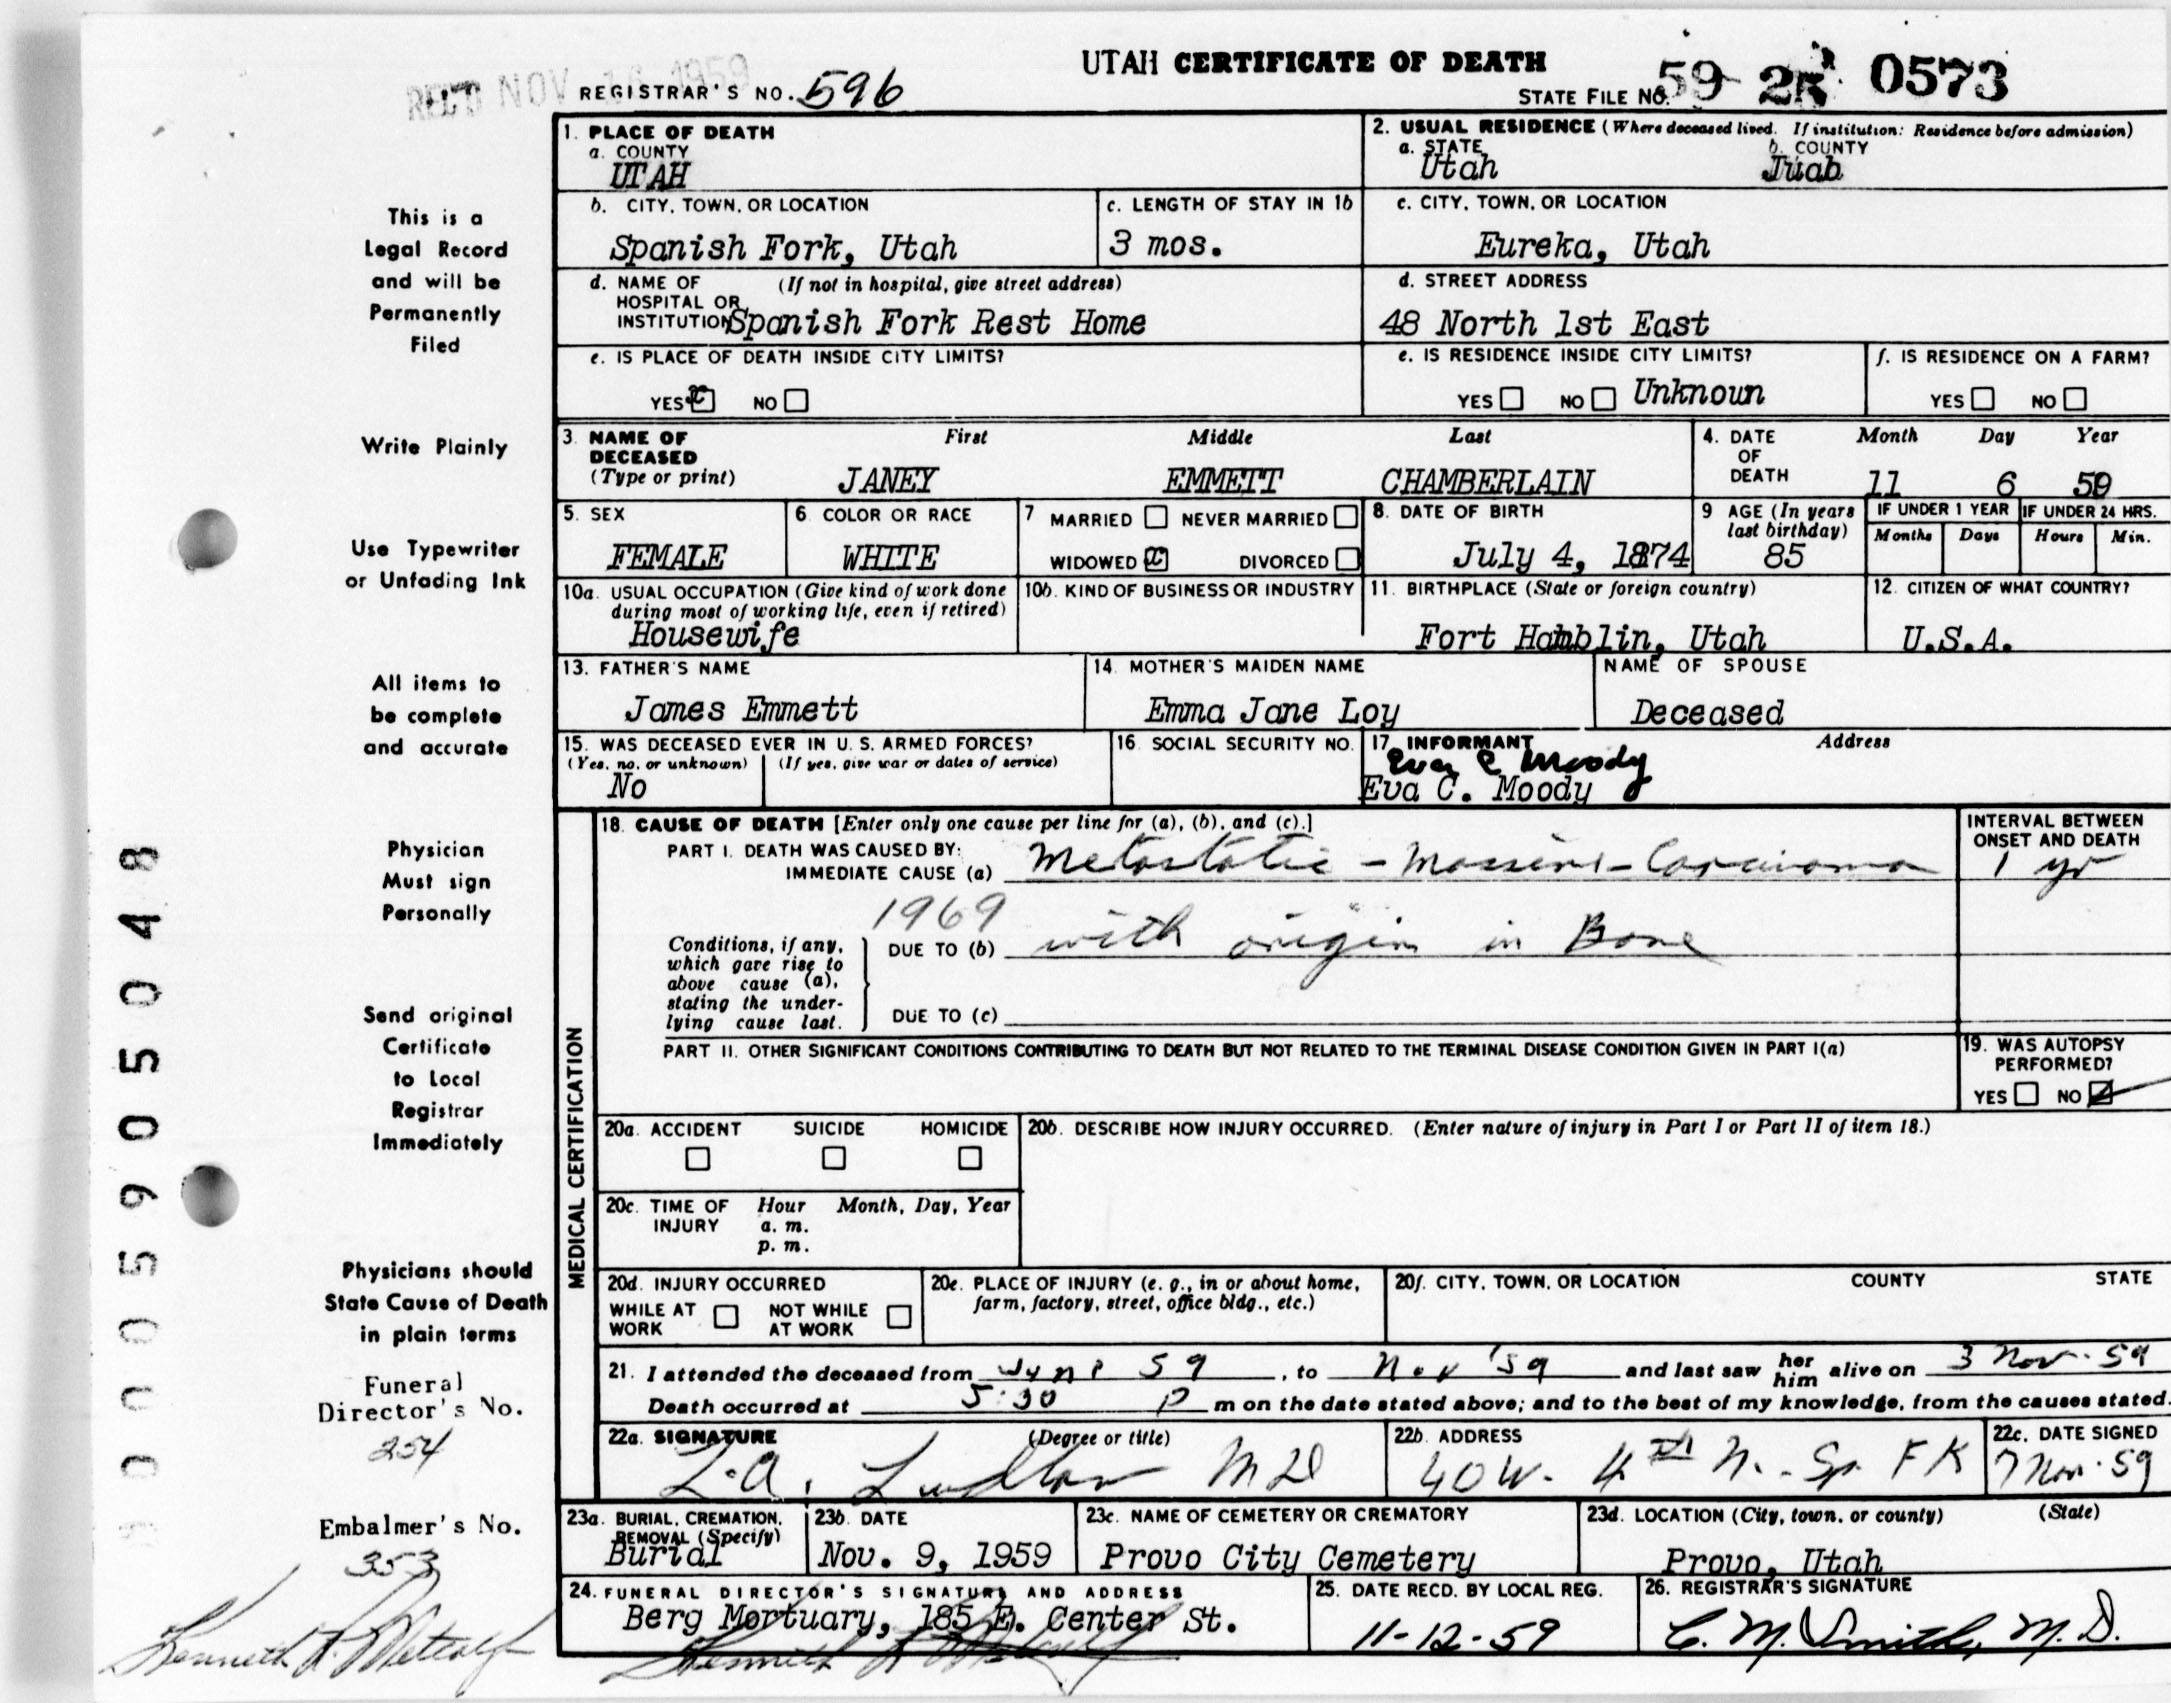 UTAH CERTIFICATE OF DEATH
REC'D NOV 16 1959
REGISTRAR'S NO. 596
STATE FILE NO. 59- 25 0573
This is a
Legal Record
and will be
Permanently
Filed
Write Plainly
Use Typewriter
or Unfading Ink
All items to
be complete
and accurate
Physician
Must sign
Personally
Send original
Certificate
to Local
Registrar
Immediately
Physicians should
State Cause of Death
in plain terms
Funeral
Director's No.
254
Embalmer's No.
353
Kenneth R. Metcalf
1. PLACE OF DEATH
a. COUNTY
UTAH
2. USUAL RESIDENCE (Where deceased lived. If institution: Residence before admission)
a. STATE b. COUNTY
Utah Juab
b. CITY, TOWN, OR LOCATION
Spanish Fork, Utah
c. LENGTH OF STAY IN 1b
3 mos.
c. CITY, TOWN, OR LOCATION
Eureka, Utah
d. NAME OF (If not in hospital, give street address)
HOSPITAL OR
INSTITUTION Spanish Fork Rest Home
d. STREET ADDRESS
48 North 1st East
e. IS PLACE OF DEATH INSIDE CITY LIMITS?
YES x NO
e. IS RESIDENCE INSIDE CITY LIMITS?
YES NO Unknown
f. IS RESIDENCE ON A FARM?
YES NO
3. NAME OF First Middle Last
DECEASED
(Type or print) JANEY EMMETT CHAMBERLAIN
4. DATE Month Day Year
OF
DEATH 11 6 59
5. SEX
FEMALE
6. COLOR OR RACE
WHITE
7 MARRIED NEVER MARRIED
WIDOWED x DIVORCED
8. DATE OF BIRTH
July 4, 1874
9 AGE (In years
last birthday)
85
IF UNDER 1 YEAR IF UNDER 24 HRS.
Months Days Hours Min.
10a. USUAL OCCUPATION (Give kind of work done
during most of working life, even if retired)
Housewife
10b. KIND OF BUSINESS OR INDUSTRY
11. BIRTHPLACE (State or foreign country)
Fort Hamblin, Utah
12. CITIZEN OF WHAT COUNTRY?
U.S.A.
13. FATHER'S NAME
James Emmett
14. MOTHER'S MAIDEN NAME
Emma Jane Loy
NAME OF SPOUSE
Deceased
15. WAS DECEASED EVER IN U.S. ARMED FORCES?
(Yes, no, or unknown) (If yes, give war or dates of service)
No
16. SOCIAL SECURITY NO.
17. INFORMANT Address
Eva C Moody
Eva C. Moody
MEDICAL CERTIFICATION
18. CAUSE OF DEATH [Enter only one cause per line for (a), (b), and (c).]
PART I. DEATH WAS CAUSED BY:
IMMEDIATE CAUSE (a) Metastatic - Massive - Carcinoma
INTERVAL BETWEEN
ONSET AND DEATH
1 yr
1969
Conditions, if any,
which gave rise to
above cause (a),
stating the under-
lying cause last.
DUE TO (b) with origin in Bone
DUE TO (c)
PART II. OTHER SIGNIFICANT CONDITIONS CONTRIBUTING TO DEATH BUT NOT RELATED TO THE TERMINAL DISEASE CONDITION GIVEN IN PART I(a)
19. WAS AUTOPSY
PERFORMED?
YES NO
20a. ACCIDENT SUICIDE HOMICIDE
20b. DESCRIBE HOW INJURY OCCURRED. (Enter nature of injury in Part I or Part II of item 18.)
20c. TIME OF Hour Month, Day, Year
INJURY a. m.
p. m.
20d. INJURY OCCURRED
WHILE AT NOT WHILE
WORK AT WORK
20e. PLACE OF INJURY (e. g., in or about home,
farm, factory, street, office bldg., etc.)
20f. CITY, TOWN, OR LOCATION COUNTY STATE
21. I attended the deceased from June 59, to Nov '59 and last saw her him alive on 3 Nov. 59
Death occurred at 5:30 P m on the date stated above; and to the best of my knowledge, from the causes stated.
22a. SIGNATURE (Degree or title)
L.A. Ludlow MD
22b. ADDRESS
40 W. 4th N. - Sp. FK
22c. DATE SIGNED
7 Nov. 59
23a. BURIAL, CREMATION,
REMOVAL (Specify)
Burial
23b. DATE
Nov. 9, 1959
23c. NAME OF CEMETERY OR CREMATORY
Provo City Cemetery
23d. LOCATION (City, town, or county) (State)
Provo, Utah
24. FUNERAL DIRECTOR'S SIGNATURE AND ADDRESS
Berg Mortuary, 185 E. Center St.
Kenneth R Metcalf
25. DATE RECD. BY LOCAL REG.
11-12-59
26. REGISTRAR'S SIGNATURE
C. M. Smith, M.D.